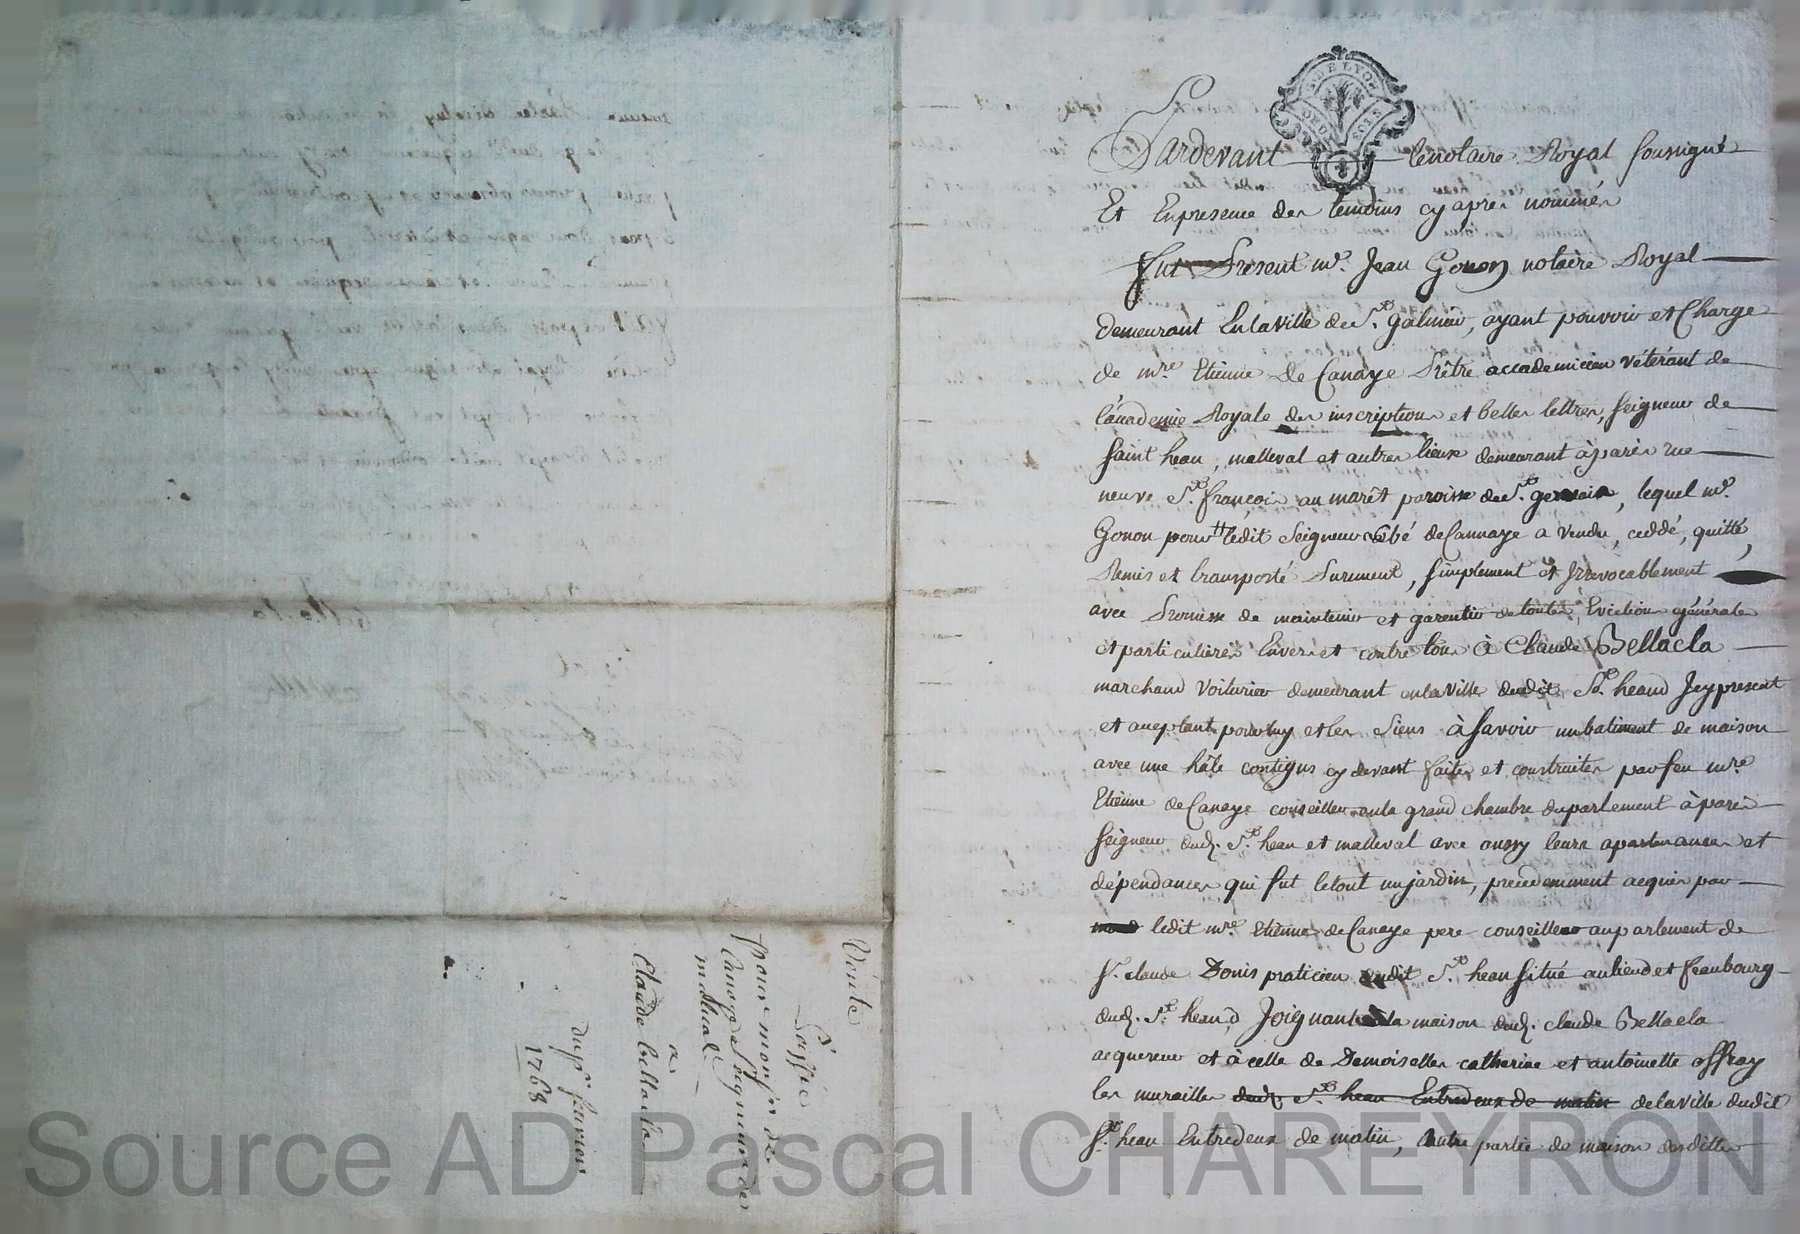 Pardevant le notaire Royal soussigné
Et En presence des temoins cy apres nommés
Fut Present me. Jean Gonon notaire Royal
demeurant En la ville de St. galmier, ayant pouvoir et Charge
de mre Etienne De Canaye Prêtre accademicien vétérant de
l'academie Royale des inscriptions et belles lettres, seigneur de
saint hean, malleval et autres lieux demeurant à paris rue
neuve St. françois au marêt paroisse de St. gervais, lequel me.
Gonon pour ledit seigneur abé de Cannaye a vendu, ceddé, quitté,
Remis et transporté Purement, simplement et Irrevocablement
avec Promesse de maintenir et garentir de toutes Evictions générales
et particulieres Envers et contre tous à Claude Bellacla
marchand voiturier demeurant en la ville dudit St. heand Icy present
et aceptant pour luy et les siens à savoir un batiment de maison
avec une hâle contigus cy devant faites et construites par feu mre
Etienne de Canaye conseiller en la grand chambre du parlement à paris
seigneur dud. St. hean et malleval avec aussy leurs apartenances et
dépendances qui fut le tout un jardin, precedemment acquis par
ledit mre. Etienne de Canaye pere conseiller au parlement de
Sr. claude Donis praticien dudit St. hean situé au lieu et feaubourg
dud. St. heand, Joignant la maison dud. claude Bellacla
acquereur et à celle de Demoiselles catherine et antoinette offray
les murailles dud. St. hean Entredeux de matin de la ville dudit
St. hean Entredeux de matin, autre partie de maison desdittes
Vente
Passée
Pour monsr. de
Canaye seigneur de
malleval
a
Claude bellacla
du per. fevrier
1768
G. DE LYON
SOLS
Source AD Pascal CHAREYRON